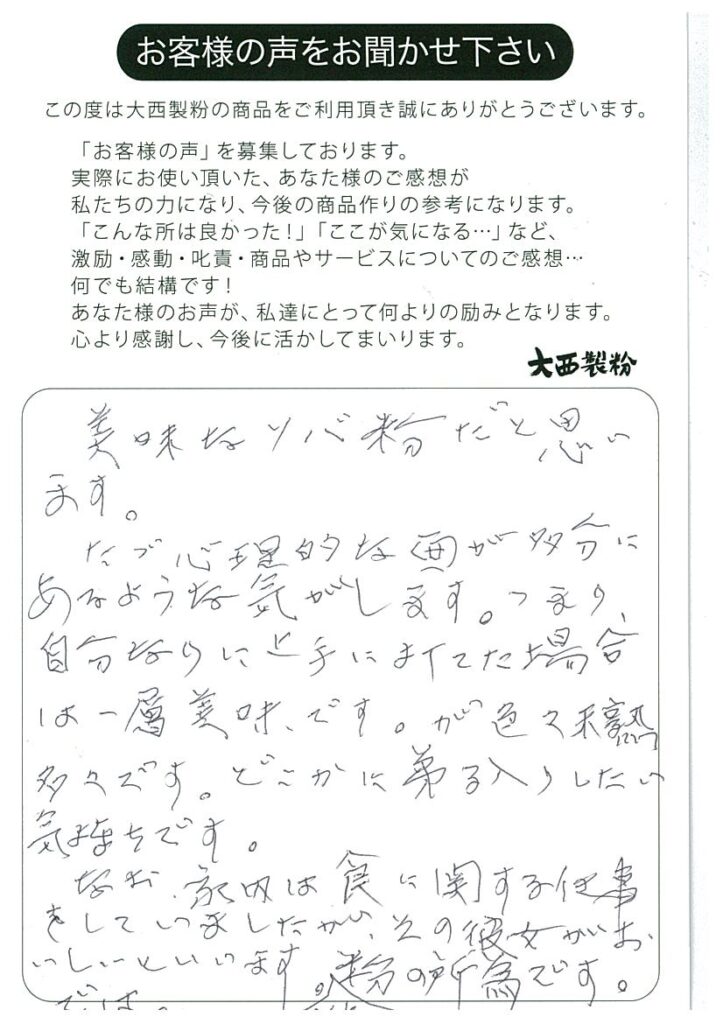 お客様の声をお聞かせ下さい
この度は大西製粉の商品をご利用頂き誠にありがとうございます。
「お客様の声」を募集しております。
実際にお使い頂いた、あなた様のご感想が
私たちの力になり、今後の商品作りの参考になります。
「こんな所は良かった!」「ここが気になる…」など、
激励・感動・叱責・商品やサービスについてのご感想…
何でも結構です!
あなた様のお声が、私達にとって何よりの励みとなります。
心より感謝し、今後に活かしてまいります。
大西製粉
美味なソバ粉だと思い
ます。
たゞ心理的な面が多分に
あるような気がします。つまり、
自分なりに上手に
た場合
は一層美味、です。が色々未熟
多々です。どこかに弟子入りしたい
気持ちです。
なお、家内は食に関する仕事
をしていましたが、その彼女がお
いしいといいます。粉の所為です。
では。